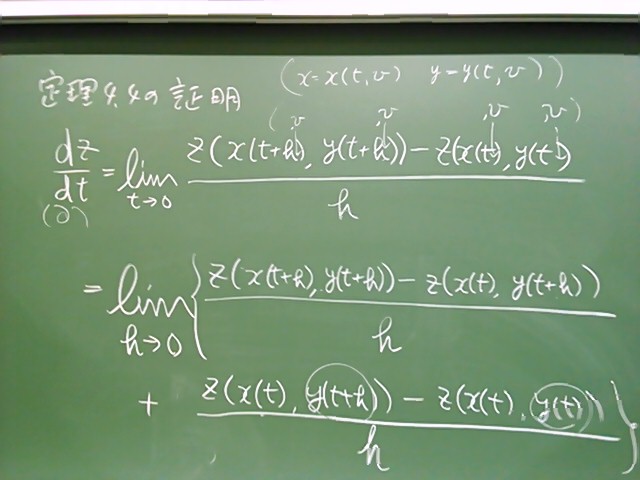 定理4.4の証明 (x=x(t,v) y=y(t,v))
(,v ,v ,v ,v)
dz/dt = lim t→0 z(x(t+h), y(t+h)) - z(x(t), y(t)) / h
(∂)
= lim h→0 { z(x(t+h), y(t+h)) - z(x(t), y(t+h)) / h
+ z(x(t), y(t+h)) - z(x(t), y(t)) / h }